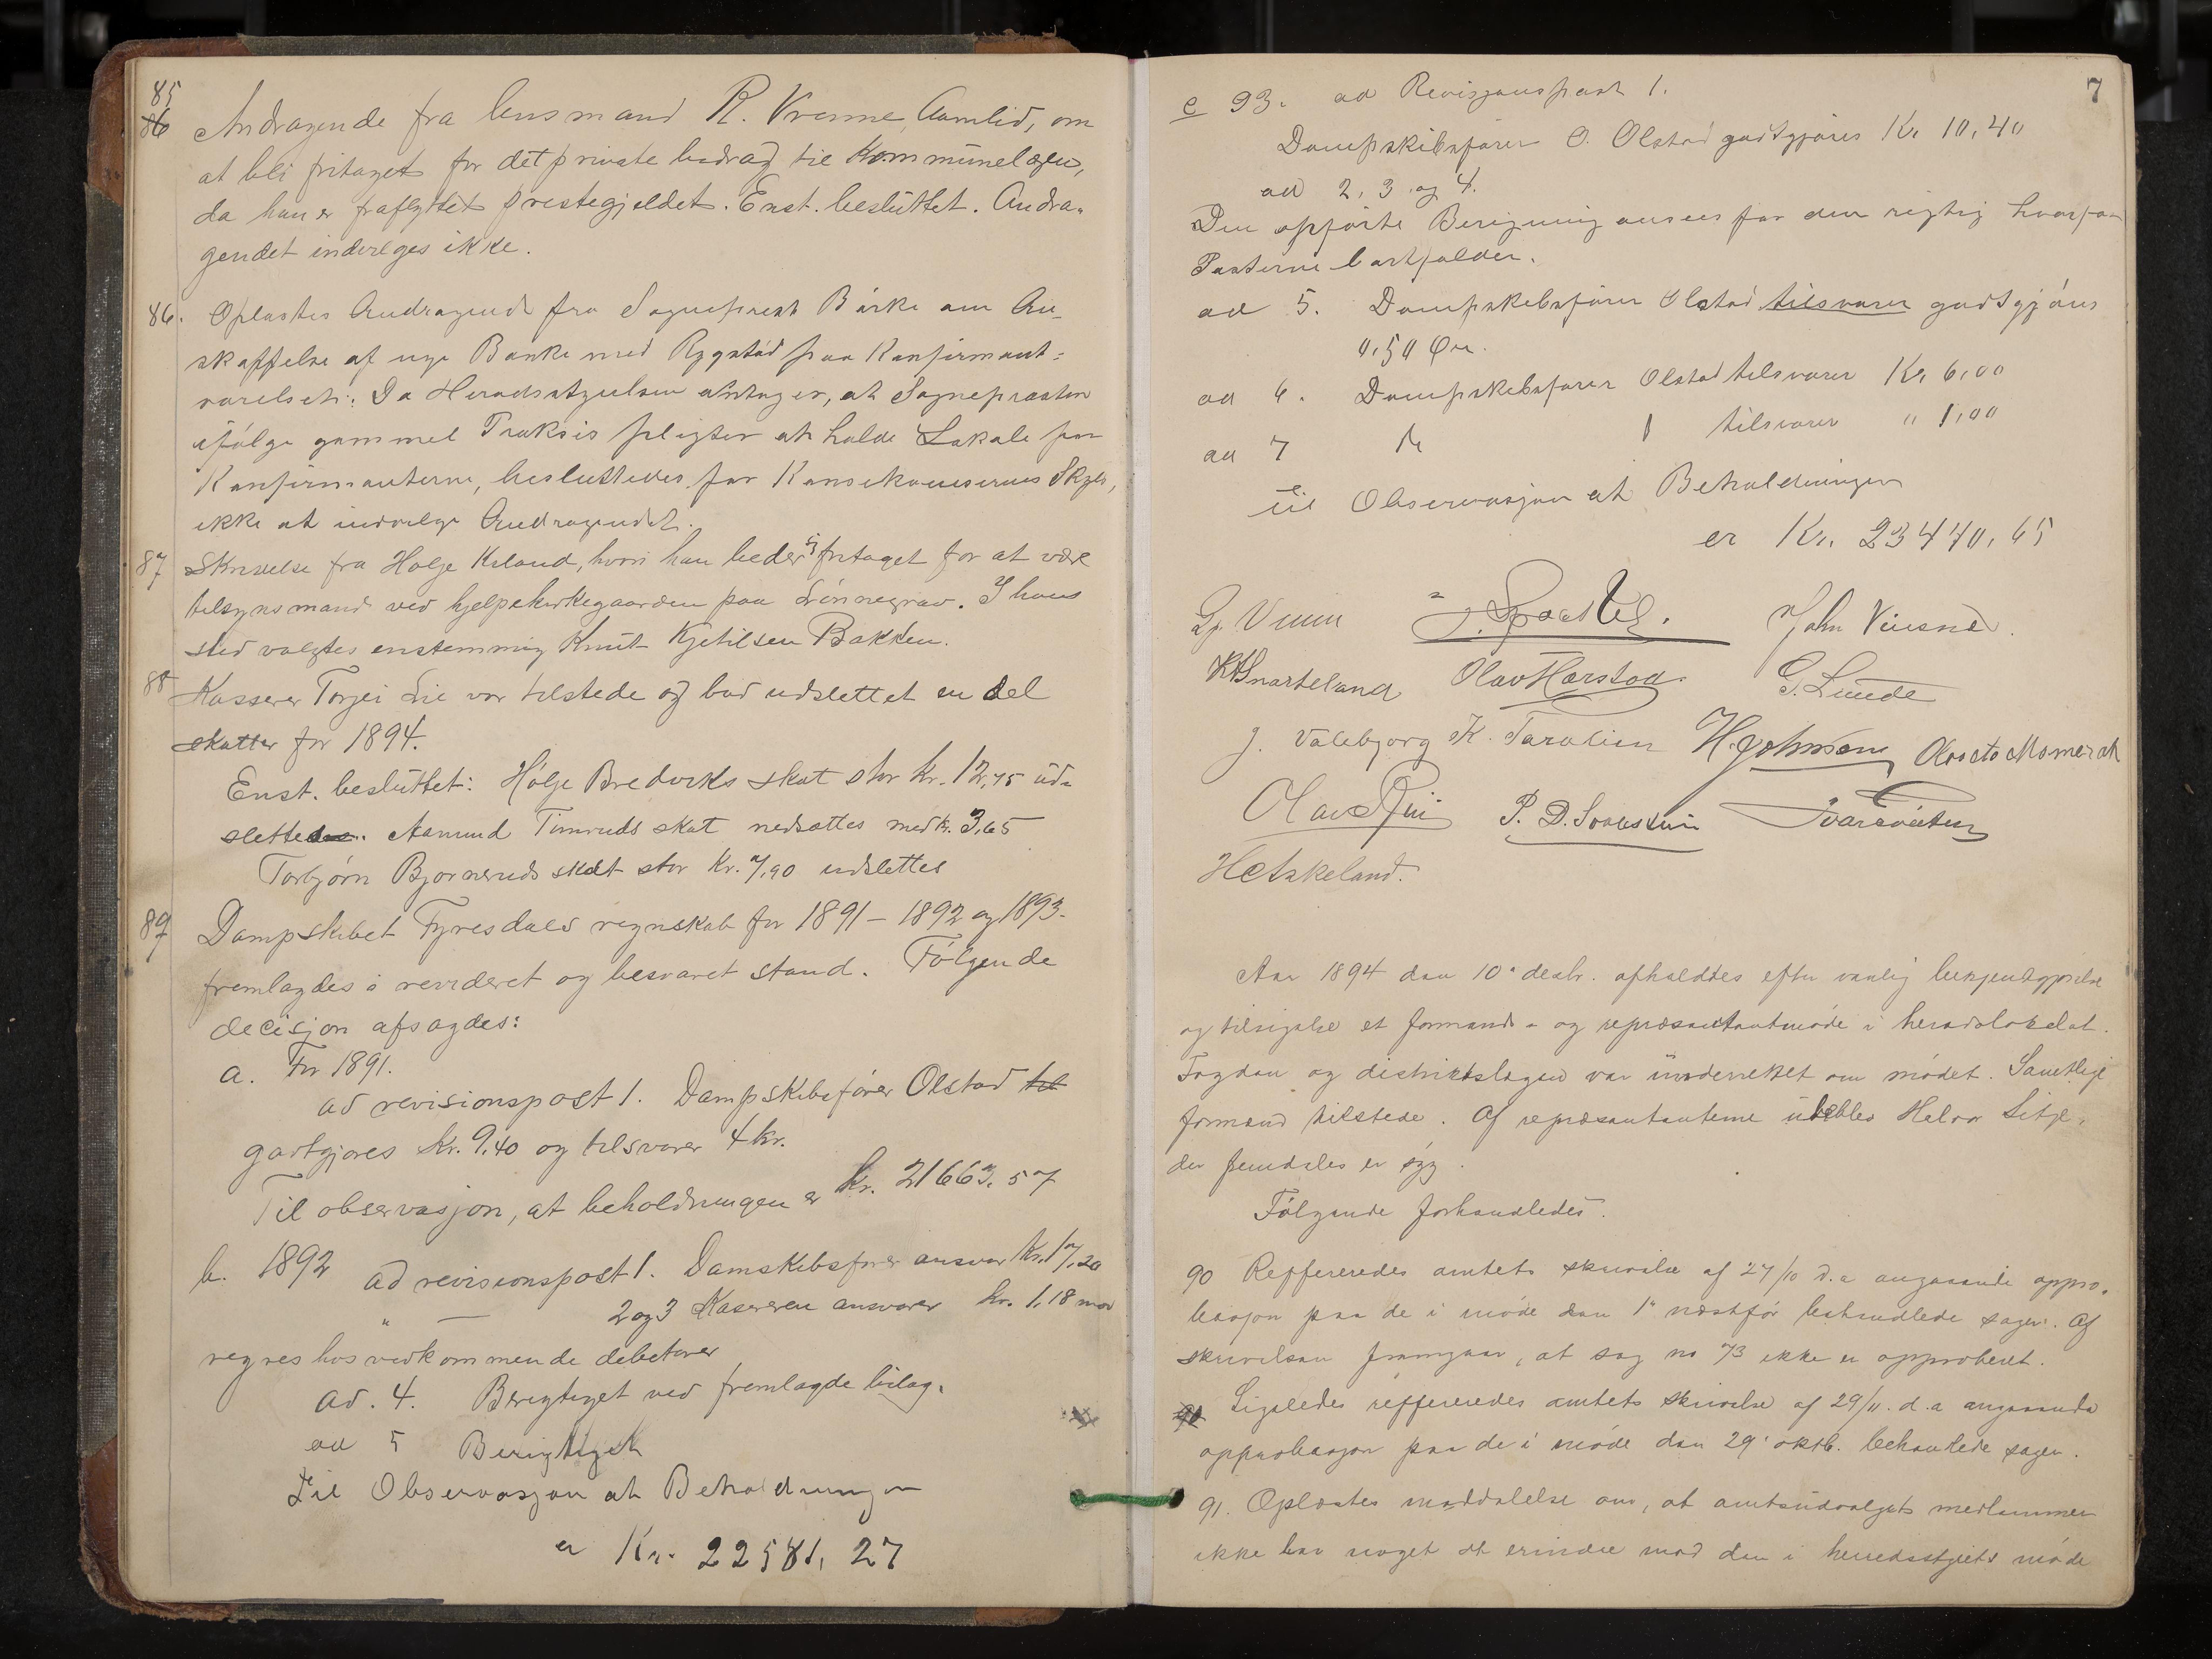 85
86 Andragende fra lensmand R. Vrenne, Aamlid, om
at bli fritaget for det private bidrag til Kommunelægen,
da han er fraflyttet prestegjeldet. Enst. besluttet. Andra-
gendet indvilges ikke.
86. Oplæstes Andragende fra Sogneprest Børke om An-
skaffelse af nye Bænke med Rygstød paa Konfirmant-
værelset. Da Heradsstyrelsen antager, at Sognepræsten
ifølge gammel Praksis pligter at holde Lokale for
Konfirmanterne, besluttedes for Konsekvensernes Skyld,
ikke at indvilge Andragendet.
87 Skrivelse fra Holje Kiland, hvori han beder sig fritaget for at være
tilsynsmand ved hjelpekirkegaarden paa Lønnegrav. I hans
sted valgtes enstemmig Knut Kjetilsen Bakken.
88 Kasserer Torjei Lie var tilstede og bad udslettet en del
skatter for 1894.
Enst. besluttet: Holje Bredviks skat stor kr. 12,75 ud-
slettes. Aamund Timruds skat nedsættes med kr. 3,65
Torbjørn Bjørneruds skat stor Kr. 7,90 udslettes
89 Dampskibet Fyresdals regnskab for 1891 - 1892 og 1893.
fremlagdes i revideret og besvaret stand. Følgende
decisjon afsagdes:
a. For 1891.
ad revisionspost 1. Dampskibsfører Olstad til
godtgjøres Kr. 9,40 og tilsvarer 4 kr.
Til observasjon, at beholdningen er kr. 21663,57
b. 1892 ad revisionspost 1. Damskibsfører ansvar Kr. 17,20
" — 2 og 3 Kasereren ansvarer kr. 1,18 mod
regres hos vedkommende debitorer
ad. 4. Berigtiget ved fremlagde bilag.
ad 5 Berigtiget
Til Observasjon at Beholdningen
er Kr. 22581,27
7
c 93. ad Revisjonspost 1.
Dampskibsfører O. Olstad godtgjøres Kr. 10,40
ad 2, 3 og 4.
Den opførte Beregning ansees for den rigtig hvorfor
Posterne bortfalder.
ad 5. Dampskibsfører Olstad tilsvarer godtgjøres
0,50 Øre.
ad 6. Dampskibsfører Olstad tilsvarer Kr. 6,00
ad 7 do tilsvarer " 1,00
til Observasjon at Beholdningen
er Kr. 23440,65
John Veiesne.
K H Snarteland Olav Harstad. G. Lunde
J. Valebjørg K. Taralien H. Johnsen Aasmund Momrak
Olav Svarstvin
H Askeland.
Aar 1894 den 10. decbr. afholdtes efter vanlig bekjentgjørelse
og tilsigelse et formands- og repræsentantmøde i heradslokalet.
Fogden og distriktslægen var underrettet om mødet. Samtlige
formænd tilstede. Af repræsentanterne udeblev Halvor Sitje,
der fremdeles er syg.
Følgende forhandledes.
90 Reffereredes amtets skrivelse af 27/10 d.a angaaende appro-
basjon paa de i møde den 1" næstfør behandlede sager. Af
skrivelsen fremgaar, at sag no 73 ikke er approberet.
Ligeledes reffereredes amtets skrivelse af 29/11. d.a angaaende
approbasjon paa de i møde den 29. oktb. behandlede sager.
91. Oplæstes meddelelse om, at amtsudvalgets medlemmer
ikke har noget at erindre mod den i herredsstyrets møde